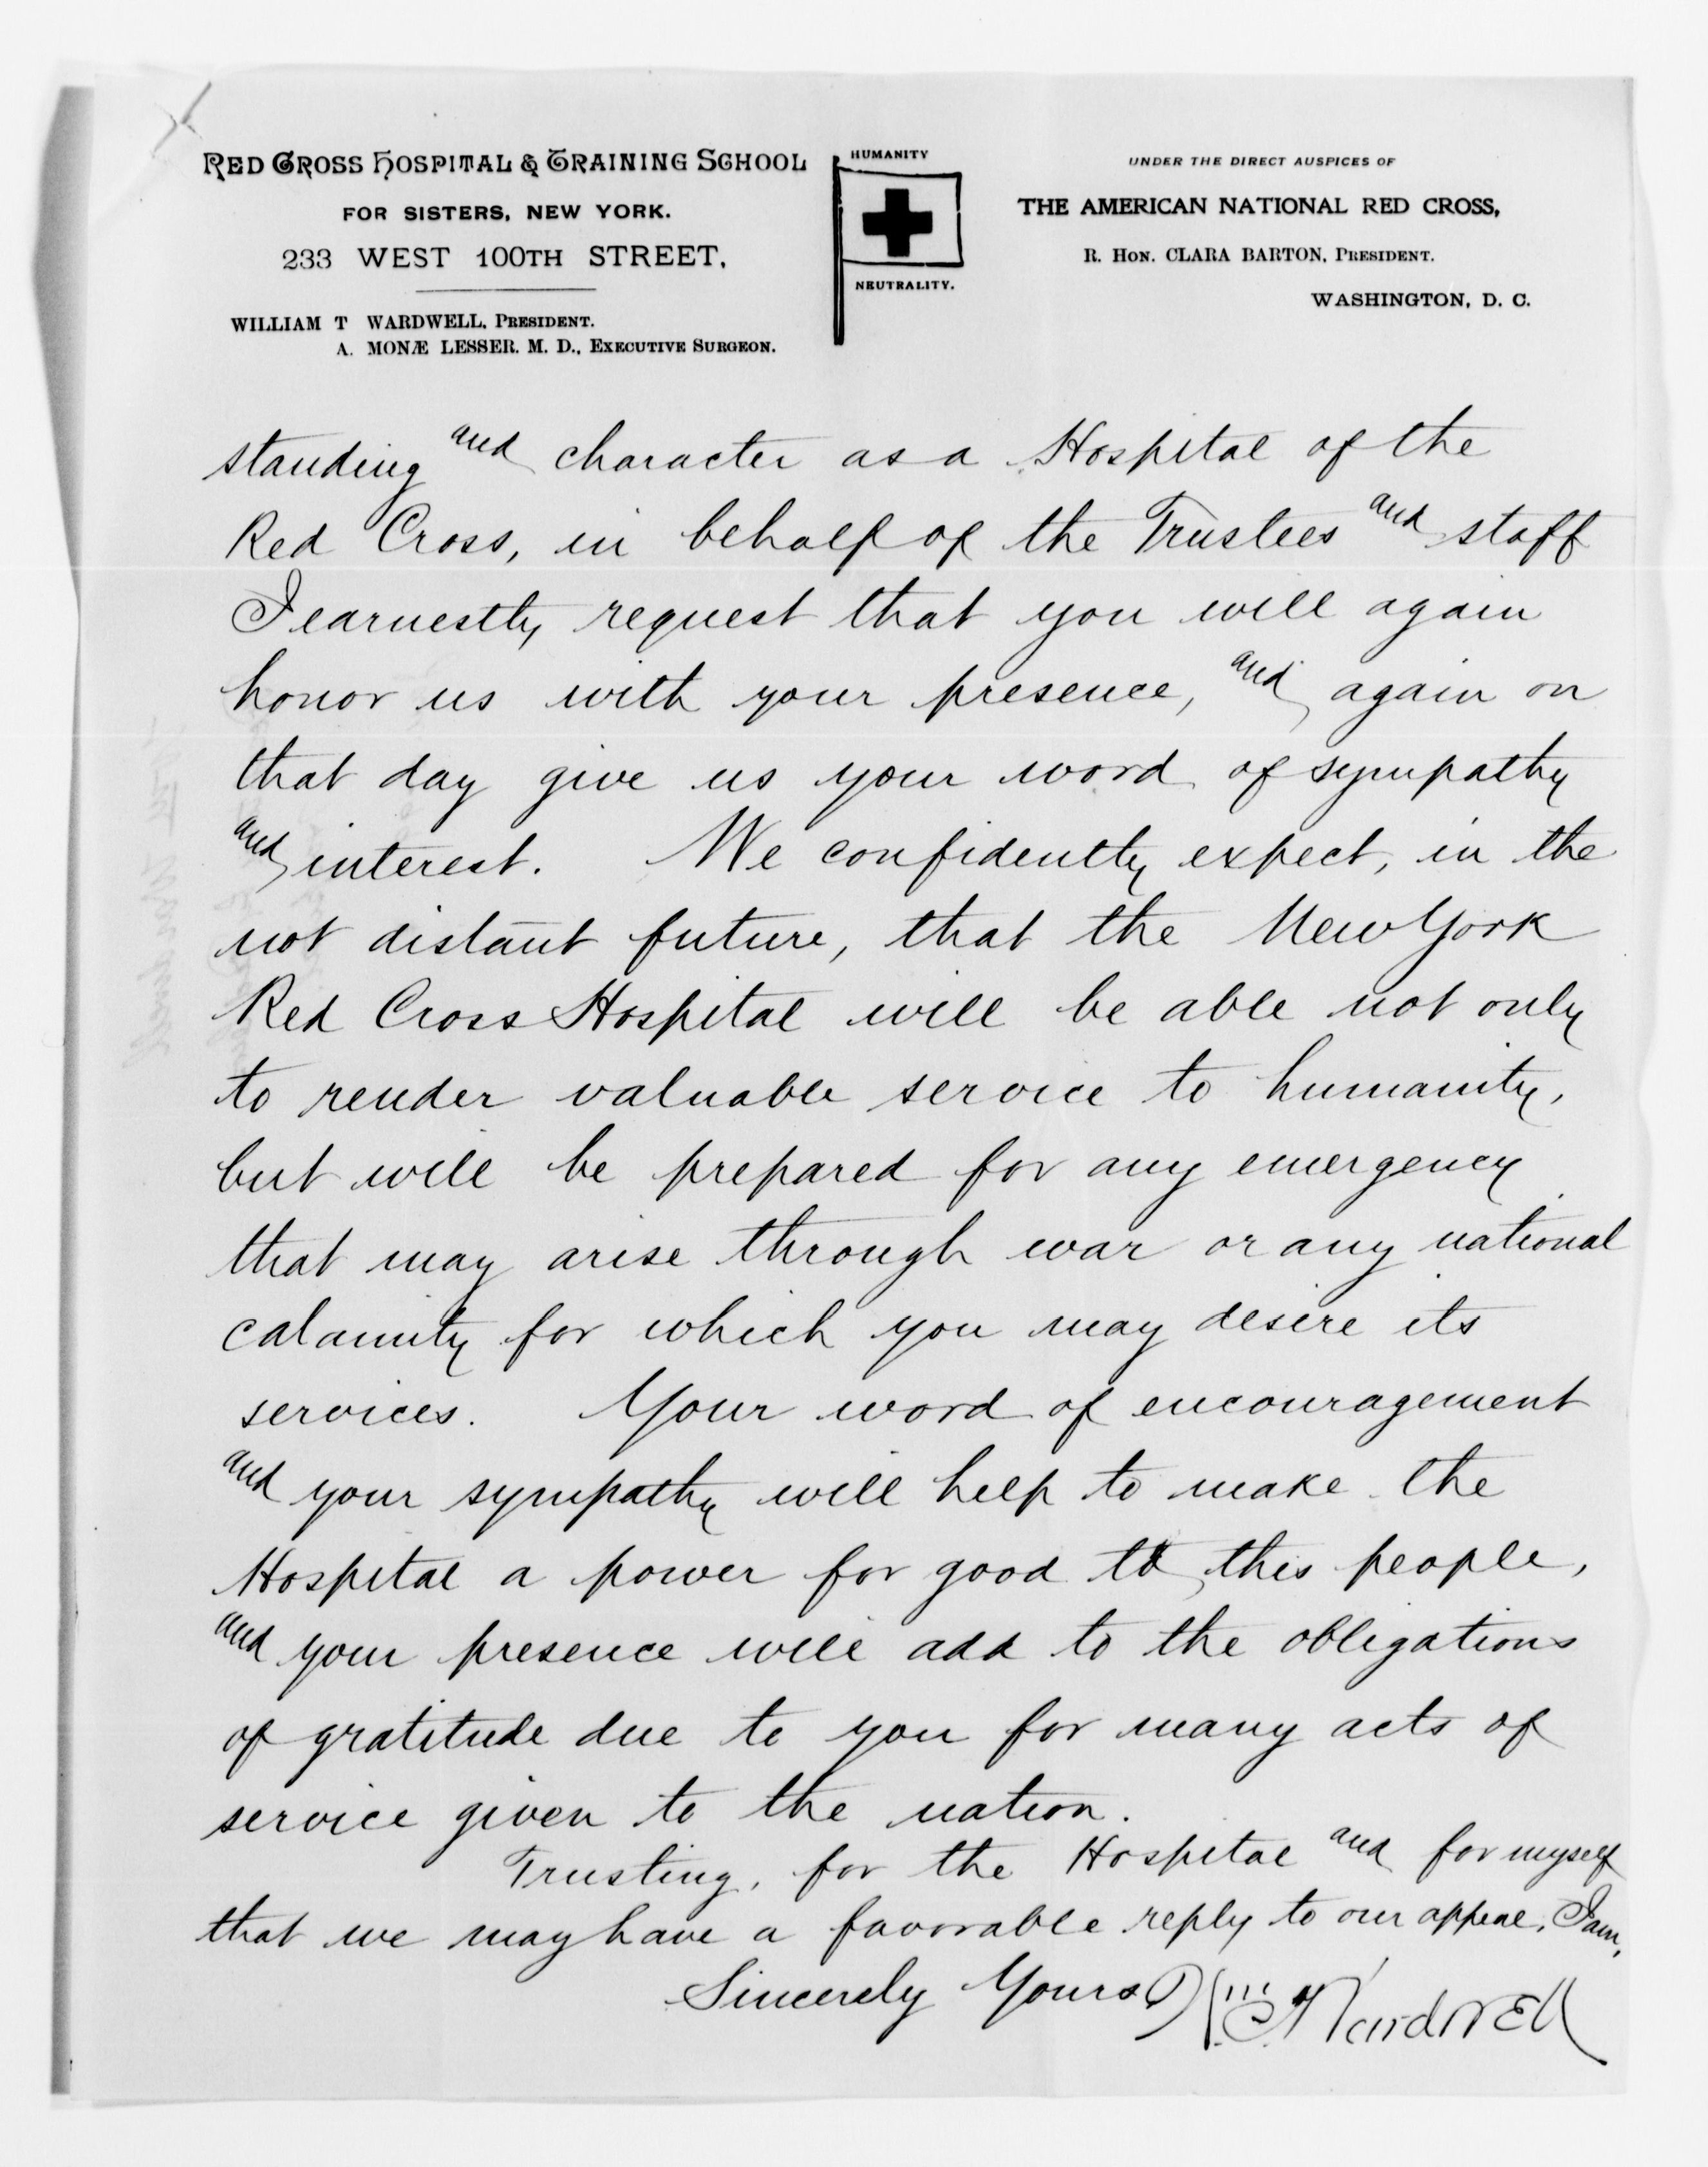 RED CROSS HOSPITAL & TRAINING SCHOOL
FOR SISTERS, NEW YORK.
233 WEST 100TH STREET,
WILLIAM T WARDWELL, PRESIDENT.
A. MONÆ LESSER. M. D., EXECUTIVE SURGEON.
HUMANITY
NEUTRALITY.
UNDER THE DIRECT AUSPICES OF
THE AMERICAN NATIONAL RED CROSS,
R. HON. CLARA BARTON, PRESIDENT.
WASHINGTON, D. C.
standing and character as a Hospital of the
Red Cross, in behalf of the Trustees and staff
I earnestly request that you will again
honor us with your presence, and again on
that day give us your word of sympathy
and interest. We confidently expect, in the
not distant future, that the New York
Red Cross Hospital will be able not only
to render valuable service to humanity,
but will be prepared for any emergency
that may arise through war or any national
calamity for which you may desire its
services. Your word of encouragement
and your sympathy will help to make the
Hospital a power for good to this people,
and your presence will add to the obligations
of gratitude due to you for many acts of
service given to the nation.
Trusting, for the Hospital and for myself
that we may have a favorable reply to our appeal, I am,
Sincerely Yours Wm T. Wardwell